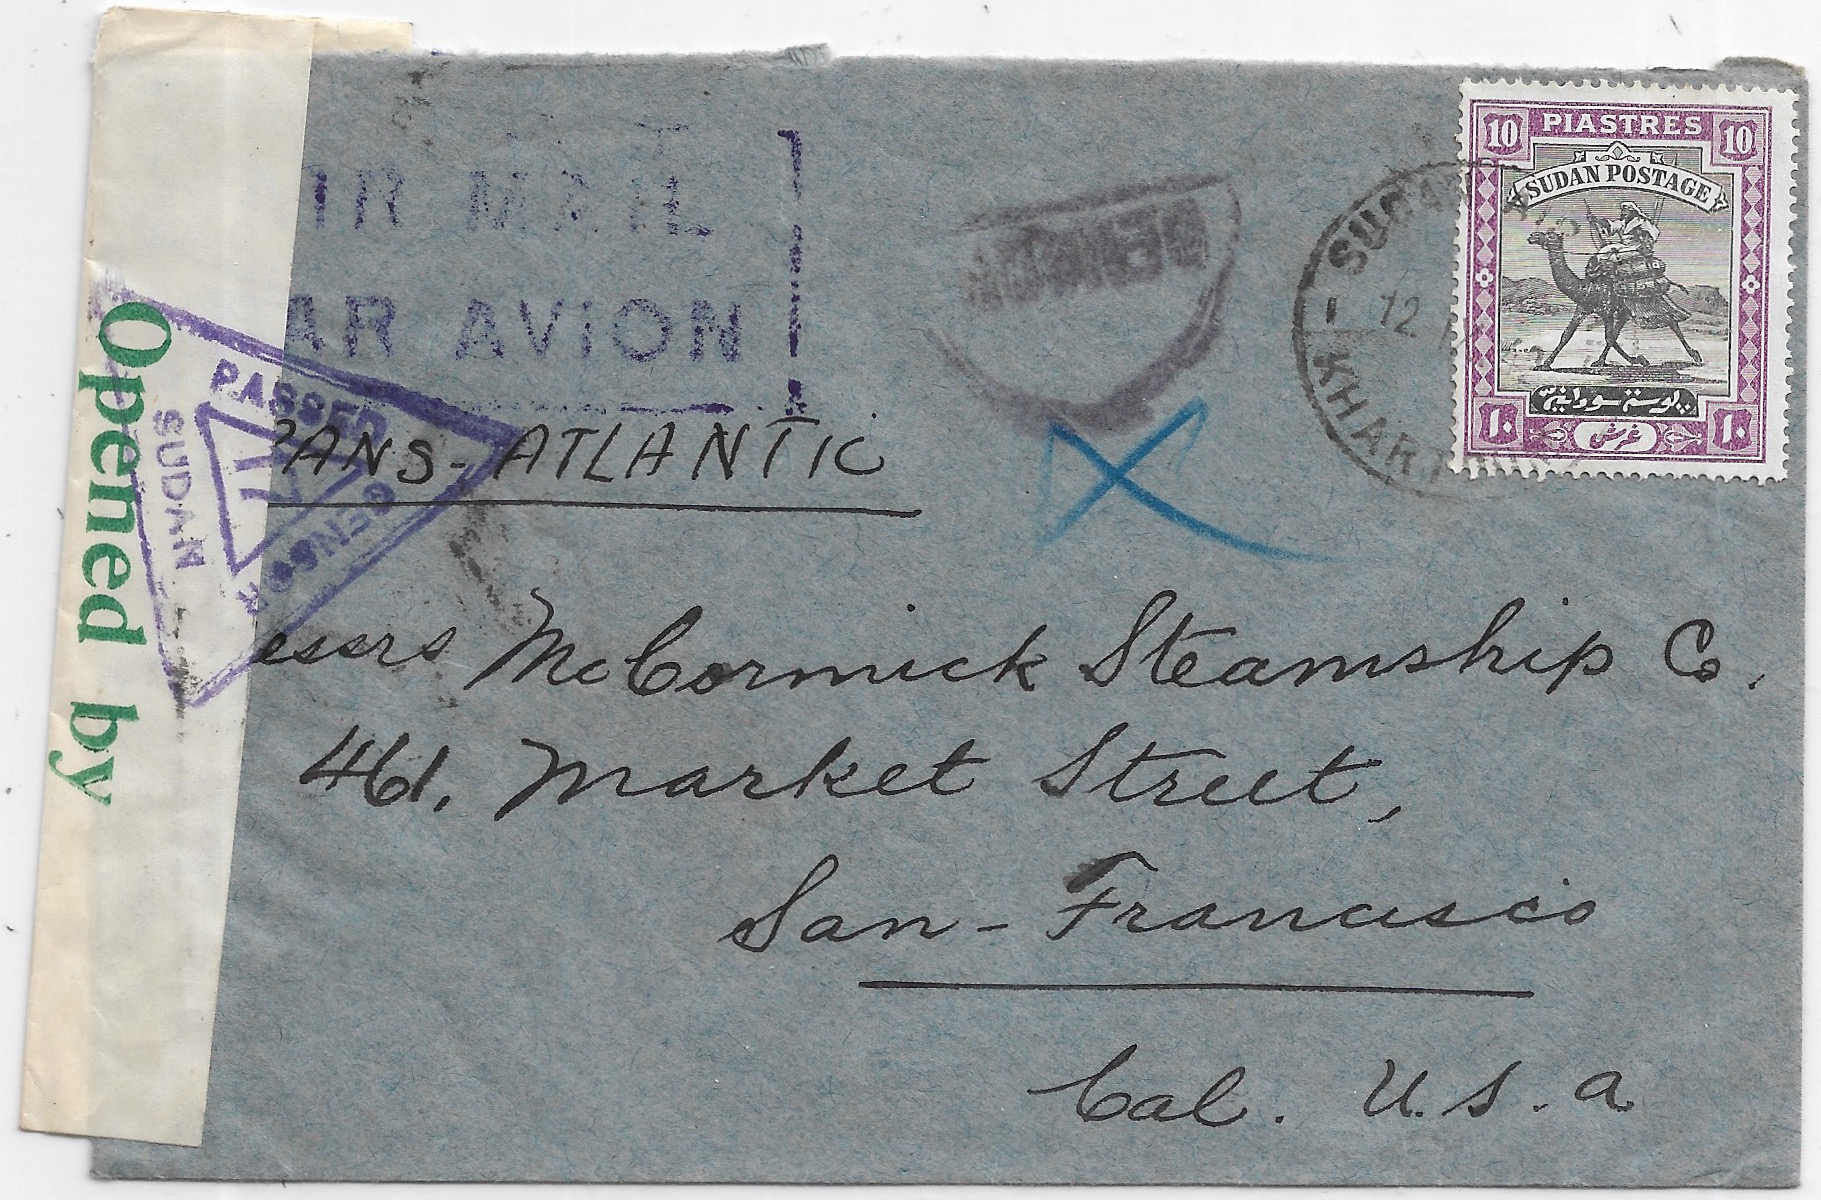 Opened by
IR MAIL
AR AVION
PASSED
CENSOR
SUDAN
RANS-ATLANTIC
SUDAN
12
KHAR
10 PIASTRES 10
SUDAN POSTAGE
پوستة سودانية
١٠ غرش ١٠
essrs McCormick Steamship Co.
461. Market Street,
San-Francisco
Cal. U.S.A